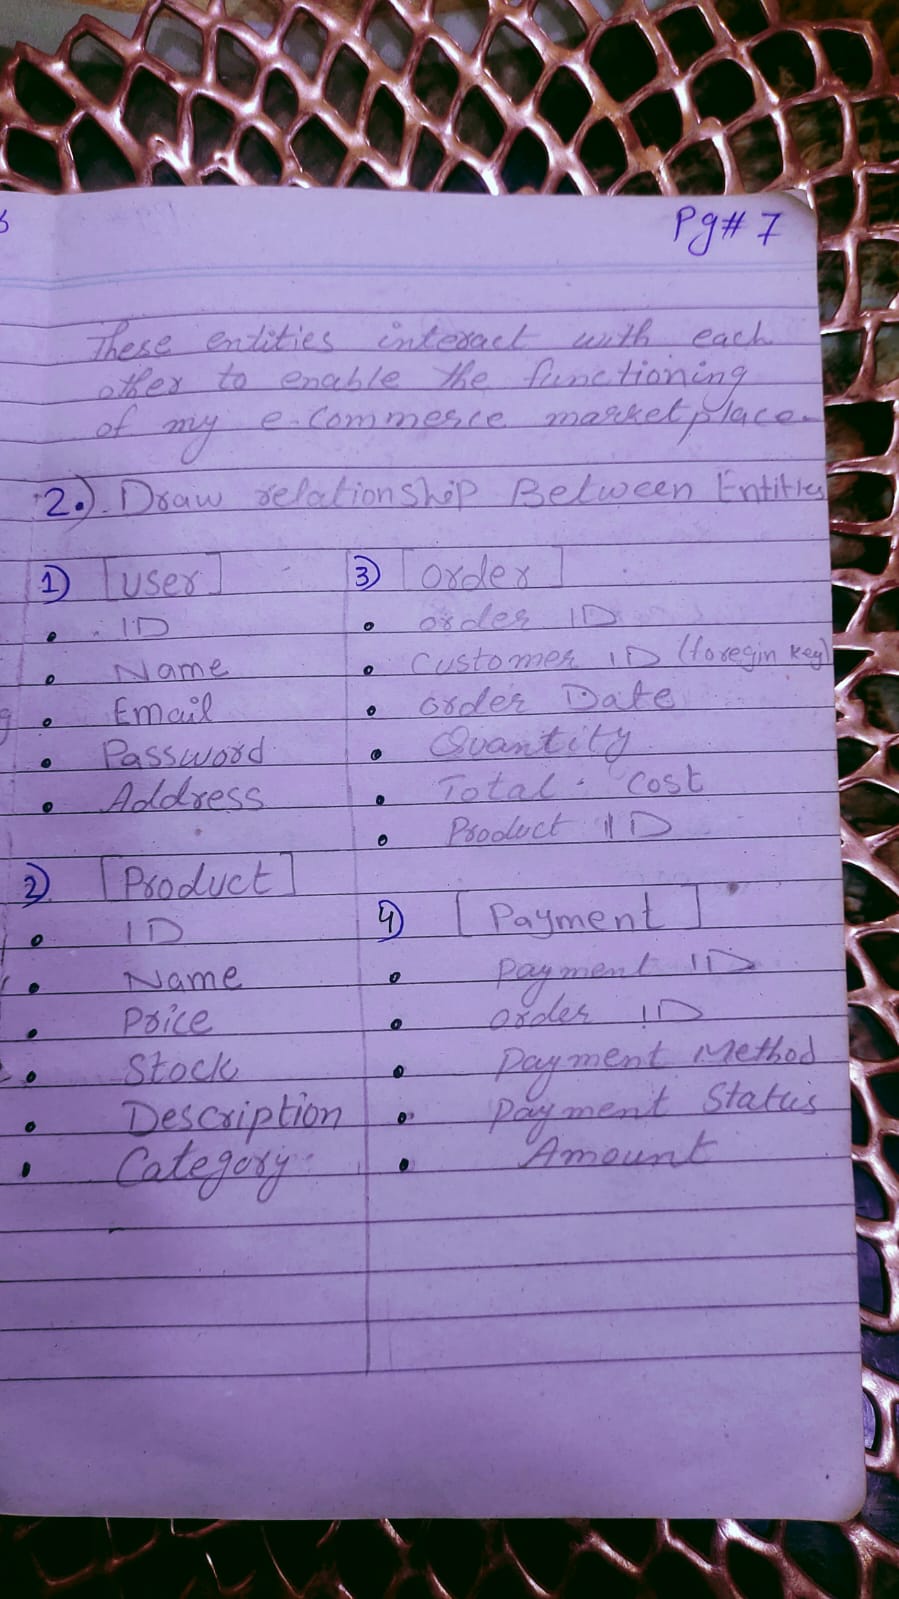 Pg# 7
These entities interact with each
other to enable the functioning
of my e-commerce marketplace.
2.) Draw relationship Between Entities
1) [User]
• ID
• Name
• Email
• Password
• Address
2) [Product]
• ID
• Name
• Price
• Stock
• Description
• Category
3) [order]
• order ID
• Customer ID (foregin key)
• order Date
• Quantity
• Total cost
• Product ID
4) [Payment]
• Payment ID
• order ID
• Payment Method
• Payment Status
• Amount